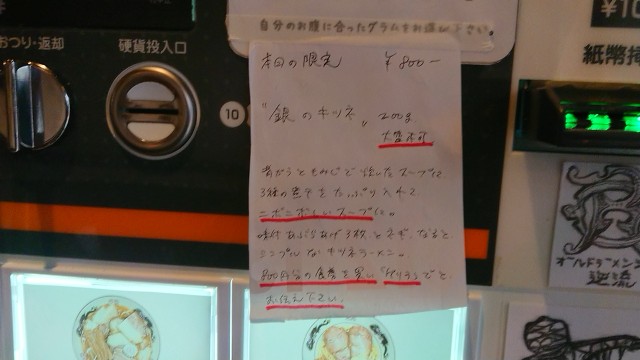 自分のお腹に合ったグラムをお選び下さい。
おつり・返却
硬貨投入口
紙幣
¥10
10
本日の限定 ¥800-
"銀のキツネ" 200g
大盛不可
スープに
3種の煮干をたっぷり入れて
ニボニボしいスープに。
味付あぶらあげ3枚とネギ、なると
シンプルなキツネラーメン。
800円分の食券を買い「限定」と
お伝え下さい。
オールドラーメンズ
逆流